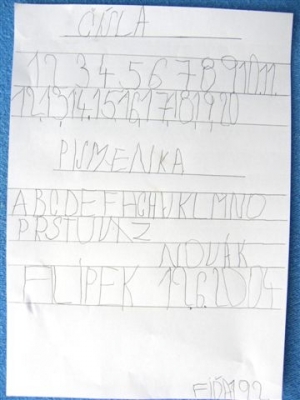 ČÍSLA
1 2 3 4 5 6 7 8 9 10. 11.
12. 13. 14. 15. 16. 17. 18. 19. 20
PISMENKA
ABCDEFHCHIJKLMNO
PRSTUVZ
NOVÁK
FILÍPEK 12.6.2004